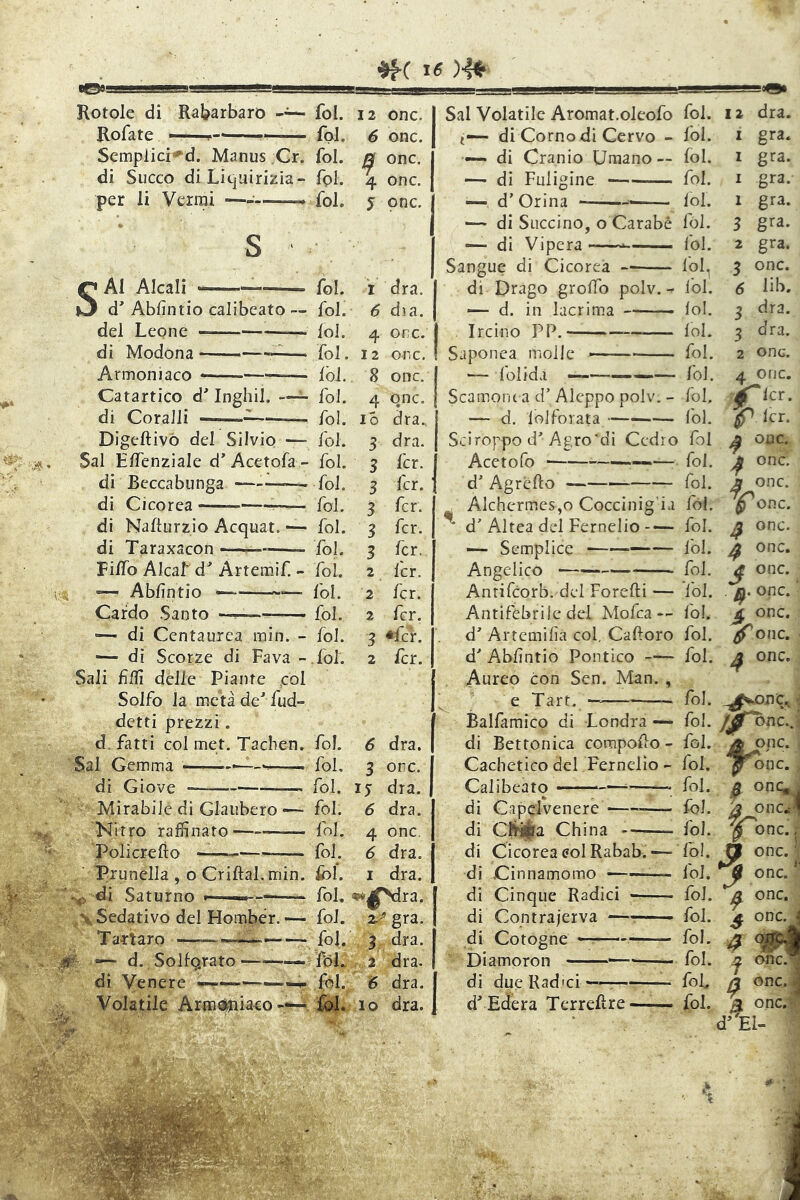 ( 16 )
Rotole di Rabarbaro — fol. 12 onc.
Rofate — fol. 6 onc.
Semplici d. Manus Cr. fol. onc.
di Succo di Liquirizia - fol. 4 onc.
per li Vermi — fol. 5 onc.
S
SAl Alcali — fol. 1 dra.
d' Abſintio calibeato — fol. 6 dra.
del Leone — fol. 4 onc.
di Modona — fol. 12 onc.
Armoniaco — fol. 8 onc.
Catartico d' Inghil. — fol. 4 onc.
di Coralli — fol. 10 dra.
Digeſtivo del Silvio — fol. 3 dra.
Sal Eſſenziale d' Acetoſa - fol. 3 ſcr.
di Beccabunga — fol. 3 ſcr.
di Cicorea — fol. 3 ſcr.
di Naſturzio Acquat. — fol. 3 ſcr.
di Taraxacon — fol. 3 ſcr.
Fiſſo Alcal d' Artemiſ. - fol. 2 ſcr.
— Abſintio — fol. 2 ſcr.
Cardo Santo — fol. 2 ſcr.
— di Centaurea min. - fol. 3 ſcr.
— di Scorze di Fava - fol. 2 ſcr.
Sali fiſſi delle Piante col
Solfo la metà de' ſud-
detti prezzi.
d. fatti col met. Tachen. fol. 6 dra.
Sal Gemma — fol. 3 onc.
di Giove — fol. 15 dra.
Mirabile di Glaubero — fol. 6 dra.
Nitro raffinato — fol. 4 onc.
Policreſto — fol. 6 dra.
Prunella, o Criſtal. min. fol. 1 dra.
di Saturno — fol. dra.
Sedativo del Homber. — fol. 2 gra.
Tartaro — fol. 3 dra.
— d. Solforato — fol. 2 dra.
di Venere — fol. 6 dra.
Volatile Armoniaco — fol. 10 dra.
Sal Volatile Aromat.oleoſo fol. 12 dra.
— di Corno di Cervo - fol. 1 gra.
— di Cranio Umano -- fol. 1 gra.
— di Fuligine — fol. 1 gra.
— d' Orina — fol. 1 gra.
— di Succino, o Carabè fol. 3 gra.
— di Vipera — fol. 2 gra.
Sangue di Cicorea — fol. 3 onc.
di Drago groſſo polv. - fol. 6 lib.
— d. in lacrima — fol. 3 dra.
Ircino PP. — fol. 3 dra.
Saponea molle — fol. 2 onc.
— ſolida — fol. 4 onc.
Scamonea d' Aleppo polv. - fol. ſcr.
— d. ſolforata — fol. ſcr.
Sciroppo d' Agro di Cedro fol onc.
Acetoſo — fol. onc.
d' Agreſto — fol. onc.
Alchermes,o Coccinig ia fol. onc.
d' Altea del Fernelio -— fol. onc.
— Semplice — fol. onc.
Angelico — fol. onc.
Antiſcorb. del Foreſti — fol. onc.
Antifebrile del Moſca -- fol. onc.
d' Artemiſia col. Caſtoro fol. onc.
d' Abſintio Pontico — fol. onc.
Aureo con Sen. Man. ,
e Tart. — fol. onc.
Balſamico di Londra — fol. onc.
di Bettonica compoſto - fol. onc.
Cachetico del Fernelio - fol. onc.
Calibeato — fol. onc.
di Capelvenere — fol. onc.
di China China — fol. onc.
di Cicorea col Rabab. — fol. onc.
di Cinnamomo — fol. onc.
di Cinque Radici — fol. onc.
di Contrajerva — fol. onc.
di Cotogne — fol. onc.
Diamoron — fol. onc.
di due Radici — fol. onc.
d' Edera Terreſtre — fol. onc.
d' El-